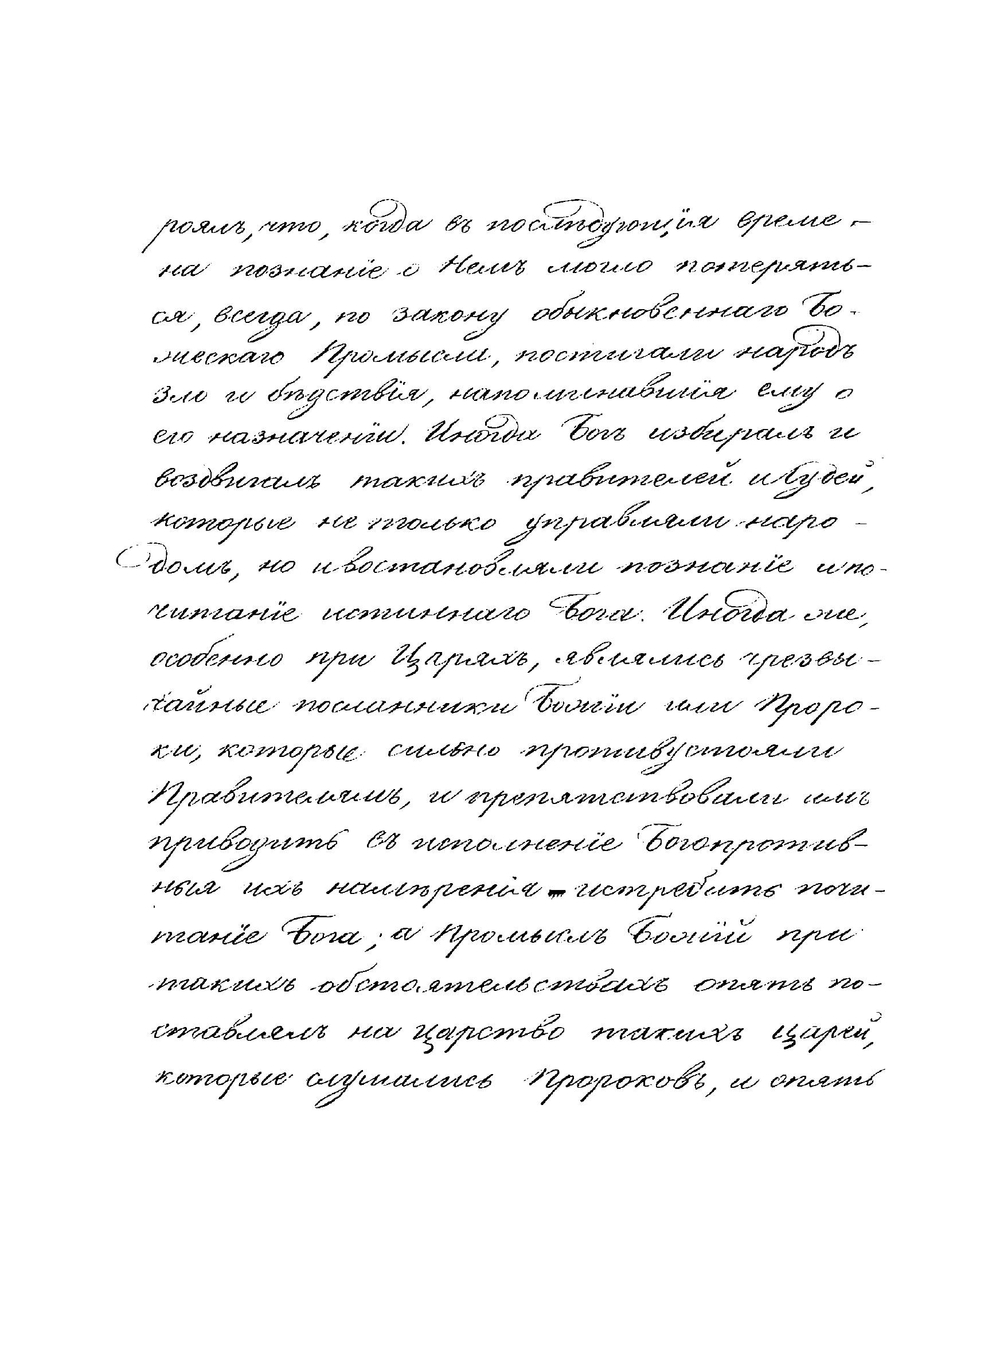 роялъ, что, когда въ послѣдующія време-
на познаніе о Немъ могло потерять-
ся, всегда, по закону обыкновеннаго Бо-
жескаго Промысла, постигали народъ
зло и бѣдствія, напоминавшія ему о
его назначеніи. Иногда Богъ избиралъ и
воздвигалъ такихъ правителей и Судей,
которые не только управляли наро-
домъ, но и востановляли познаніе и по-
читаніе истиннаго Бога. Иногда же,
особенно при Царяхъ, являлись чрезвы-
чайные посланники Божіи или Проро-
ки, которые сильно противустояли
Правителямъ, и препятствовали имъ
приводить въ исполненіе Богопротив-
ныя ихъ намѣренія – истребить почи-
таніе Бога; а Промыслъ Божій при
такихъ обстоятельствахъ опять по-
ставлялъ на царство такихъ царей,
которые слушались Пророковъ, и опять